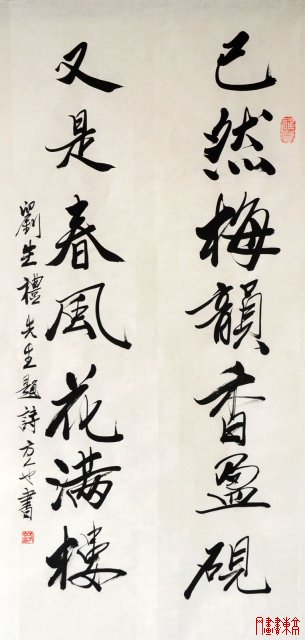 已然梅韻香盈硯
又是春風花满樓
劉生禮先生題詩
書